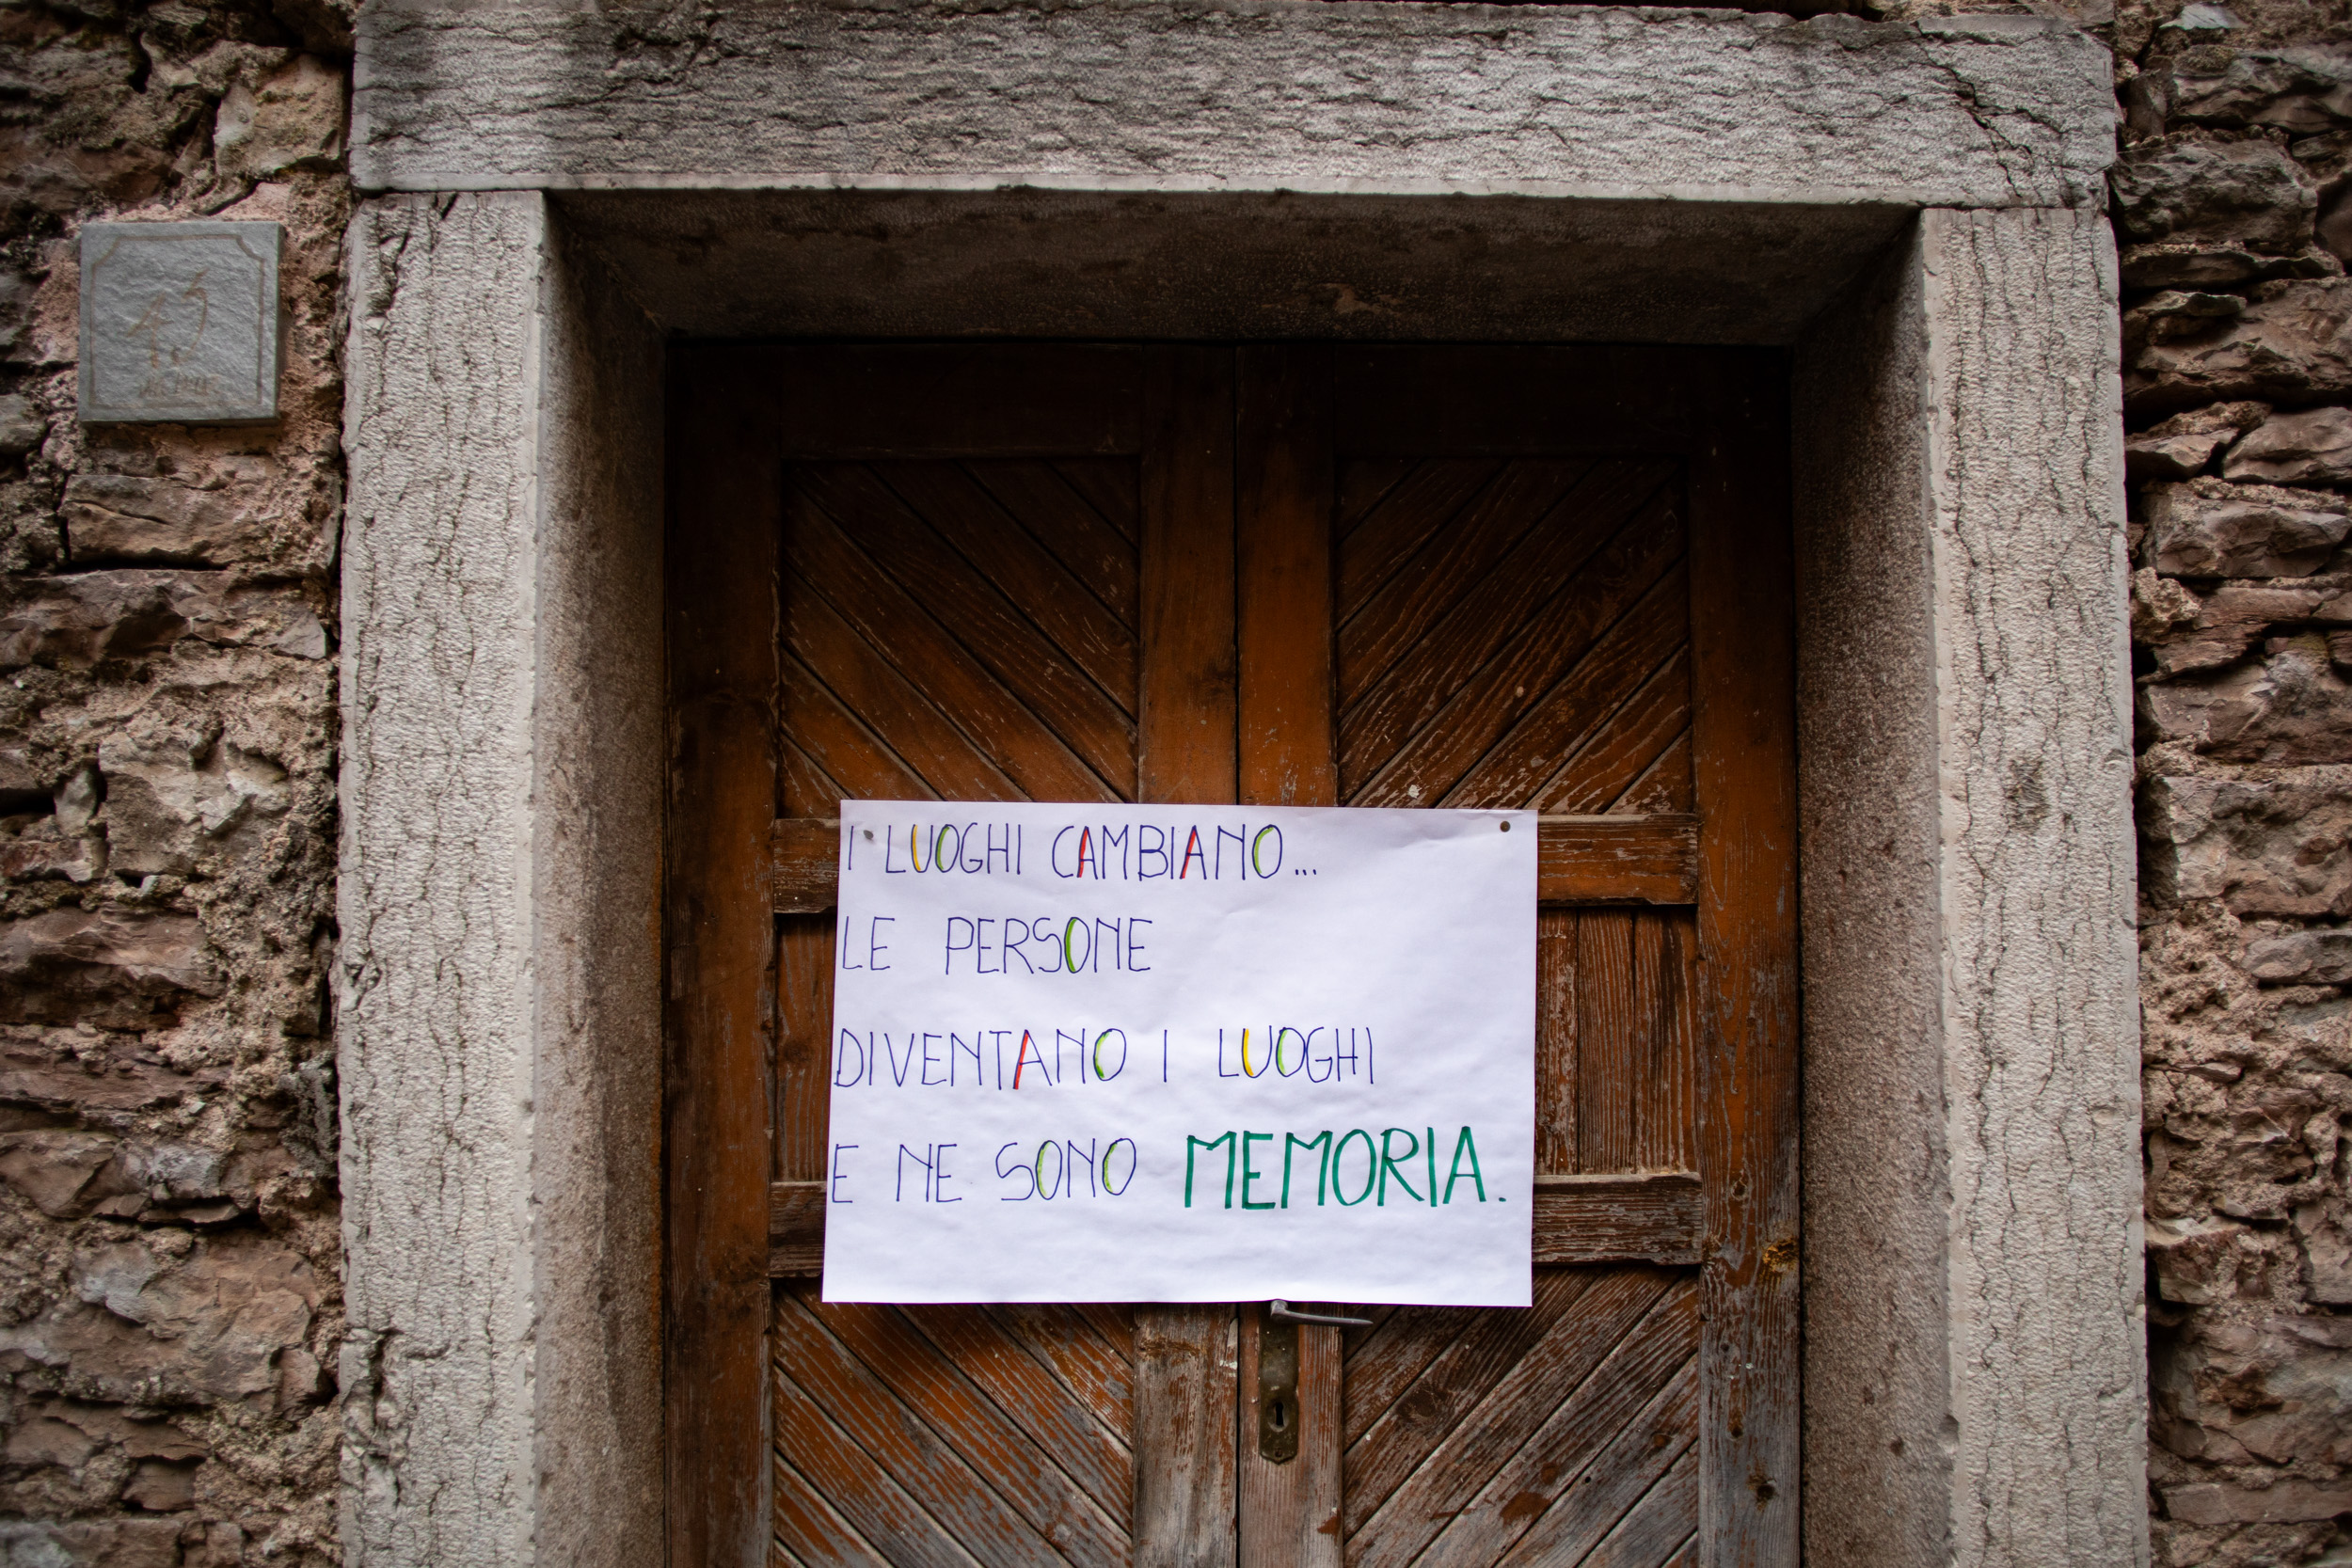 45
I LUOGHI CAMBIANO...
LE PERSONE
DIVENTANO I LUOGHI
E NE SONO MEMORIA.